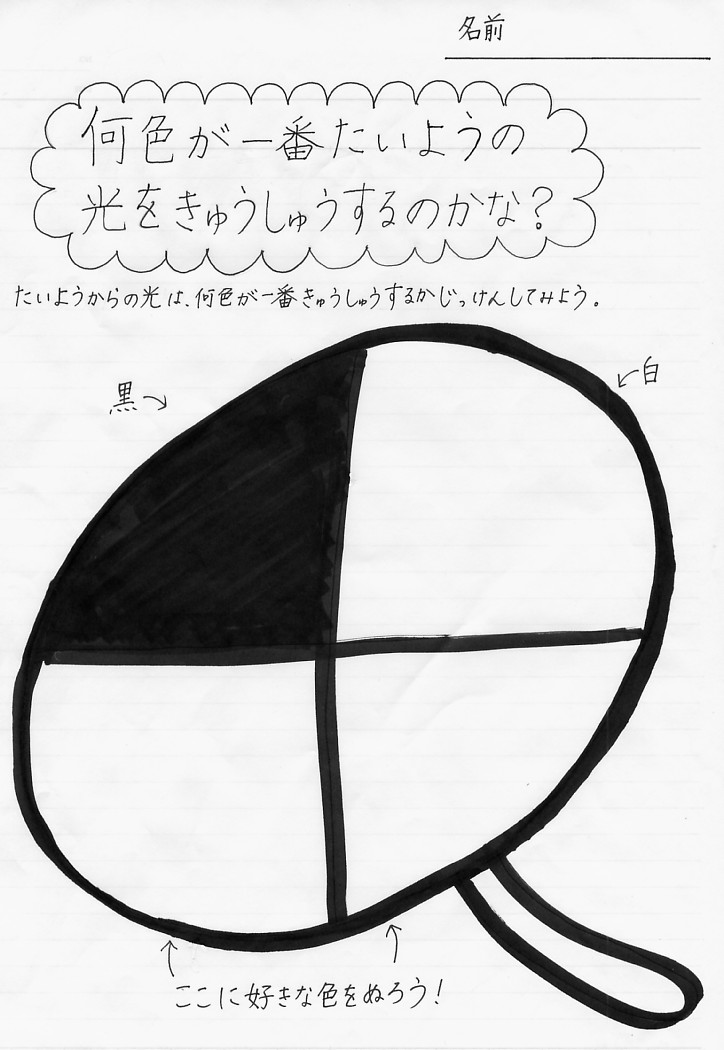 名前
何色が一番たいようの
光をきゅうしゅうするのかな?
たいようからの光は、何色が一番きゅうしゅうするかじっけんしてみよう。
黒
白
ここに好きな色をぬろう!